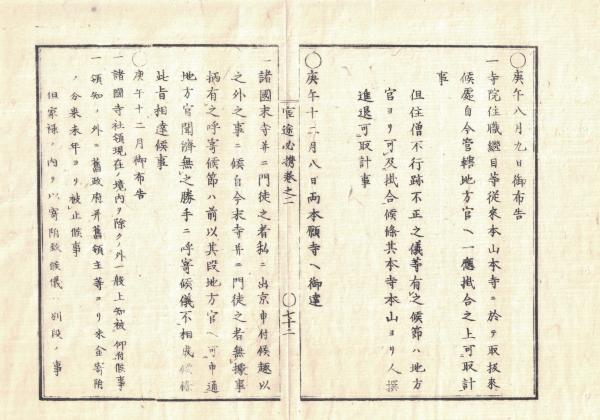 ○庚午八月九日御布告
一寺院住職継目等従来本山本寺ニ於テ取扱来
候処自今管轄地方官ヘ一應掛合之上可取計
事
但住僧不行跡不正之儀等有之候節ハ地方
官ヨリ可及掛合候條其本寺本山ヨリ人撰
進退可取計事
○庚午十二月八日両本願寺ヘ御達
官途必携巻之二
○七十二
一諸國末寺并ニ門徒之者私ニ出京申付候趣以
之外之事ニ候自今末寺并ニ門徒之者無據事
柄有之呼寄候節ハ前以其段地方官ヘ可申通
地方官聞済無之勝手ニ呼寄候儀不相成候條
此旨相達候事
○庚午十二月御布告
一諸國寺社領現在ノ境内ヲ除クノ外一般上知被仰付候事
一領知ノ外ニ舊政府并舊領主等ヨリ米金寄附
ノ分来未年ヨリ被止候事
但家禄ノ内ヲ以寄附致候儀ハ別段ノ事